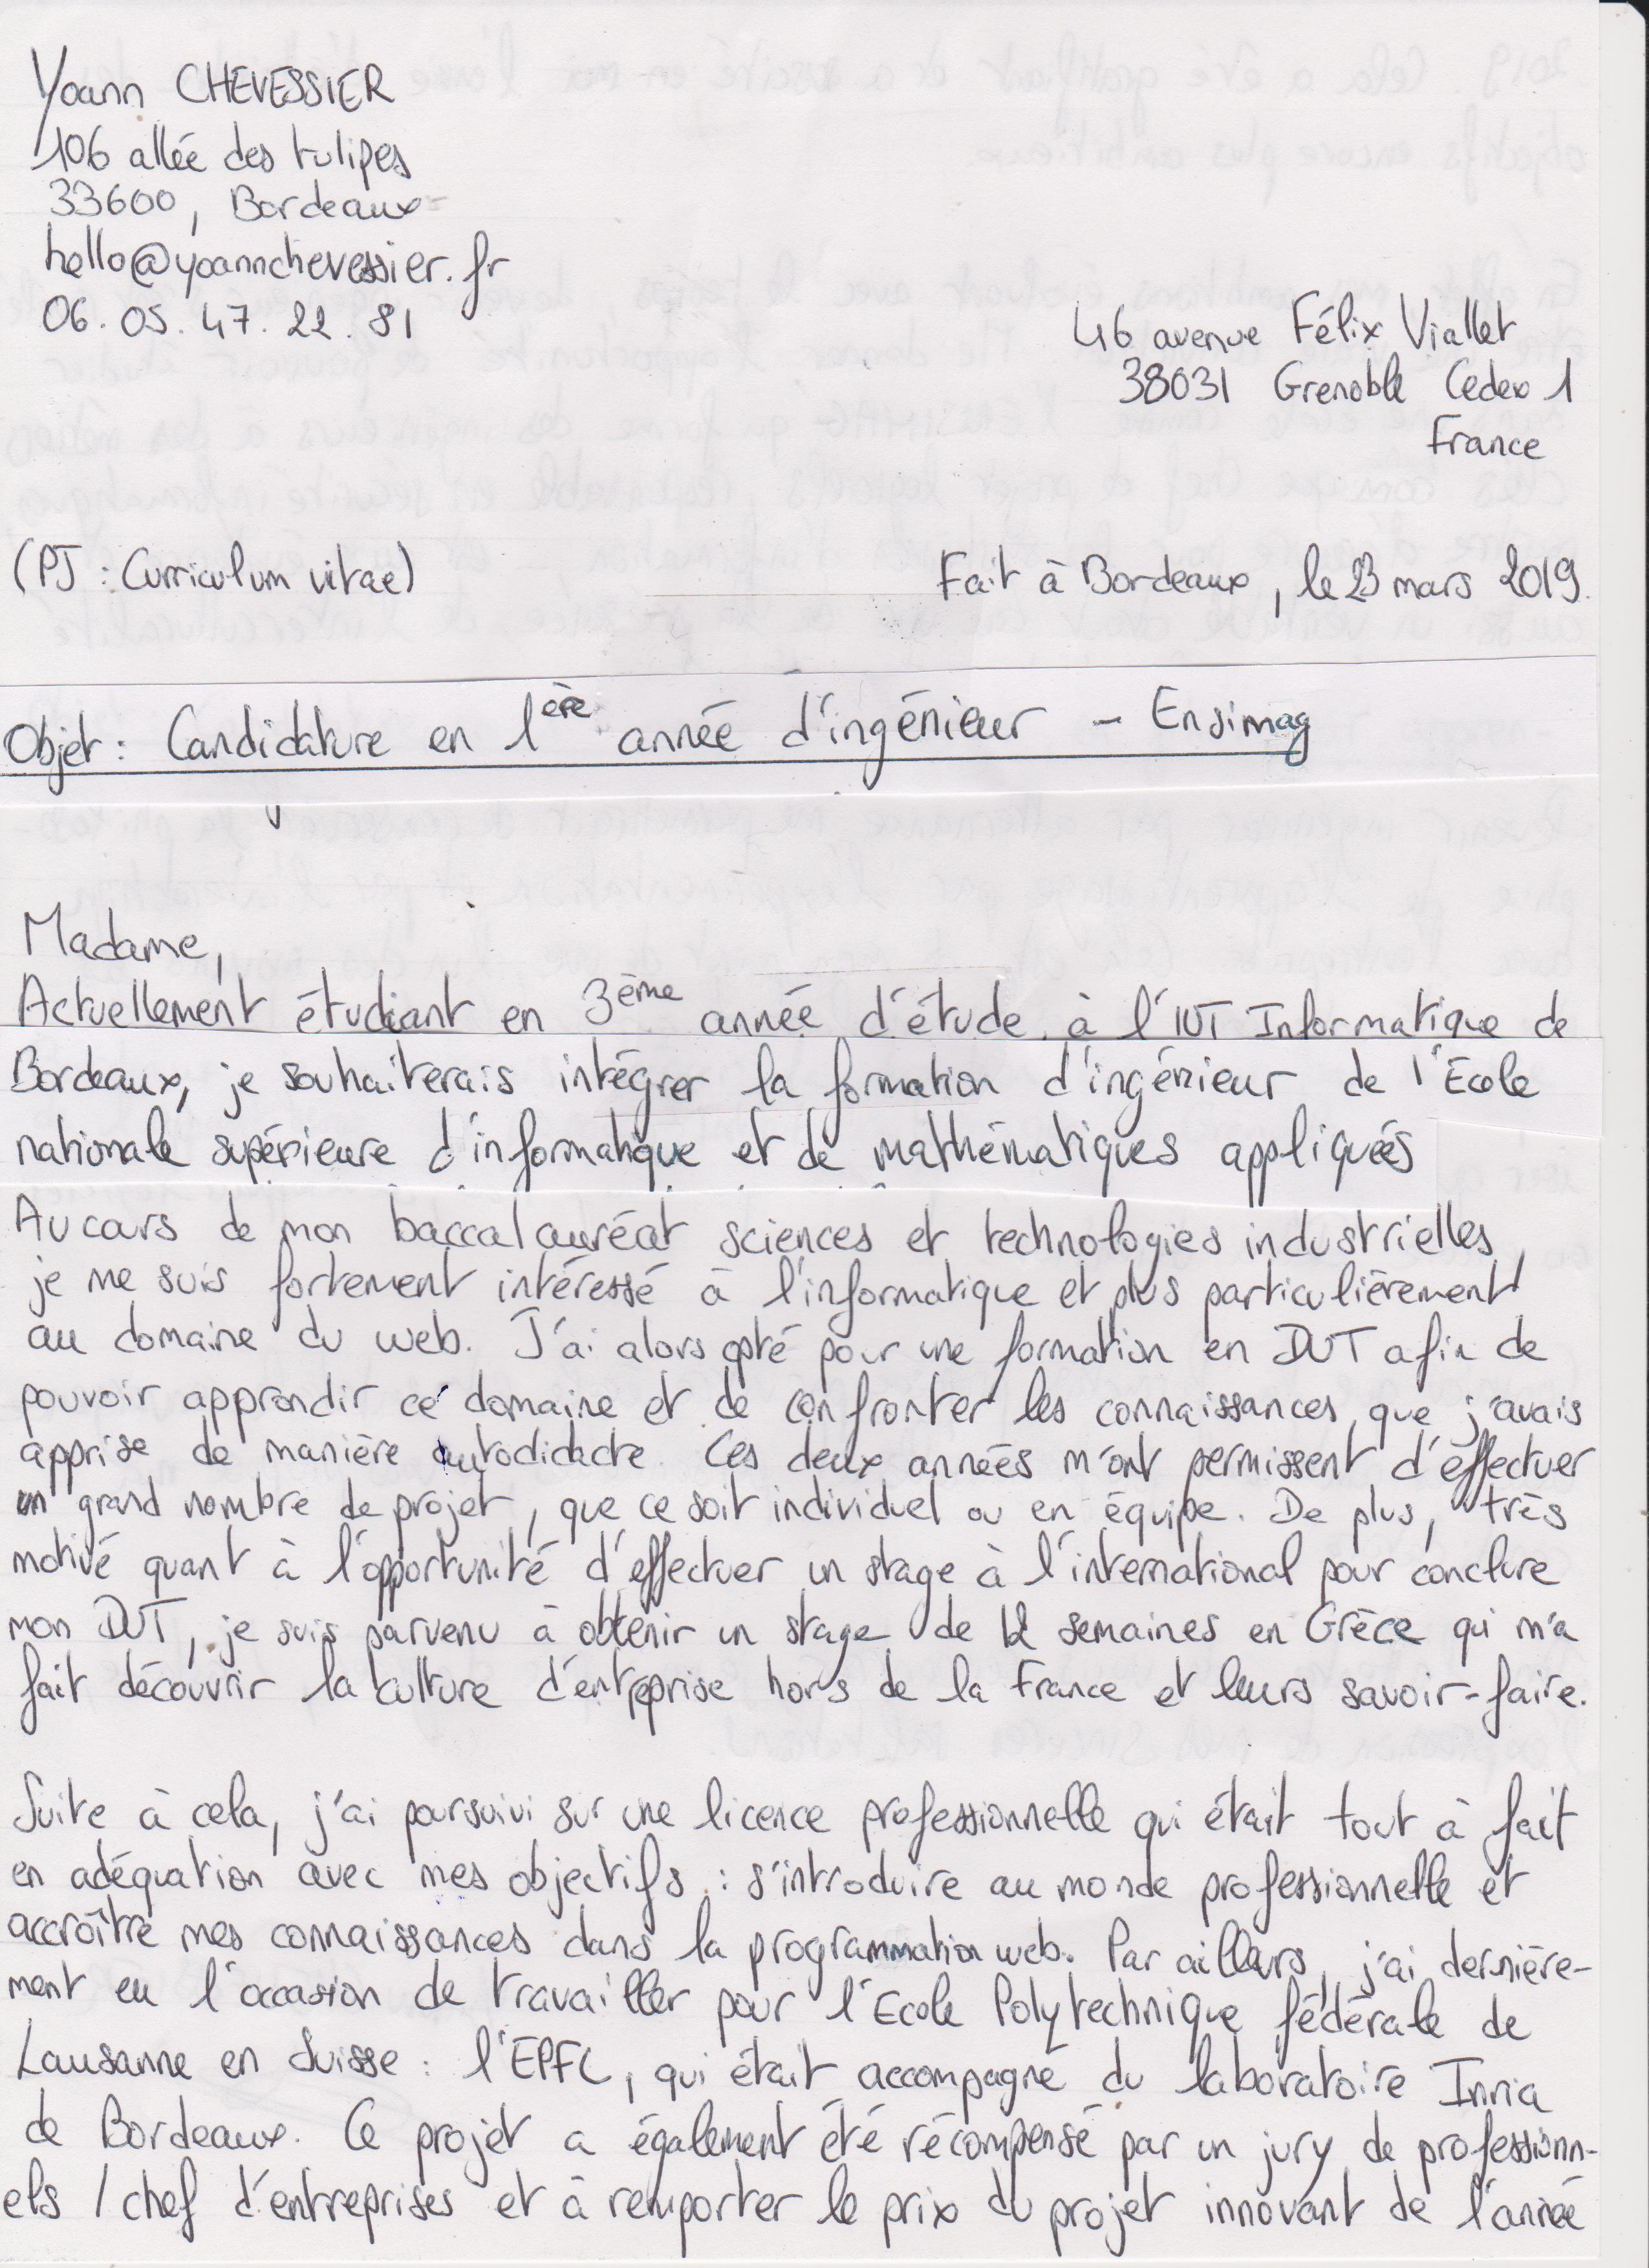 Yoann CHEVESSIER
106 allée des tulipes
33600, Bordeaux
hello@yoannchevessier.fr
06.05.47.22.81
46 avenue Félix Viallet
38031 Grenoble Cedex 1
France
(PJ : Curriculum vitae)
Fait à Bordeaux, le 23 mars 2019.
Objet : Candidature en 1ère année d'ingénieur - Ensimag
Madame,
Actuellement étudiant en 3ème année d'étude à l'IUT Informatique de
Bordeaux, je souhaiterais intégrer la formation d'ingénieur de l'Ecole
nationale supérieure d'informatique et de mathématiques appliquées
Au cours de mon baccalauréat sciences et technologies industrielles,
je me suis fortement intéressé à l'informatique et plus particulièrement
au domaine du web. J'ai alors opté pour une formation en DUT afin de
pouvoir approndir ce domaine et de confronter les connaissances que j'avais
apprise de manière autodidacte. Ces deux années m'ont permissent d'effectuer
un grand nombre de projet, que ce soit individuel ou en équipe. De plus, très
motivé quant à l'opportunité d'effectuer un stage à l'international pour conclure
mon DUT, je suis parvenu à obtenir un stage de 12 semaines en Grèce qui m'a
fait découvrir la culture d'entreprise hors de la France et leurs savoir-faire.
Suite à cela, j'ai poursuivi sur une licence professionnelle qui était tout à fait
en adéquation avec mes objectifs : s'introduire au monde professionnelle et
accroître mes connaissances dans la programmation web. Par ailleurs, j'ai dernière-
ment eu l'occasion de travailler pour l'Ecole Polytechnique fédérale de
Lausanne en Suisse : l'EPFL, qui était accompagné du laboratoire Inria
de Bordeaux. Ce projet a également été récompensé par un jury de professionn-
els / chef d'entreprises et à remporter le prix du projet innovant de l'année